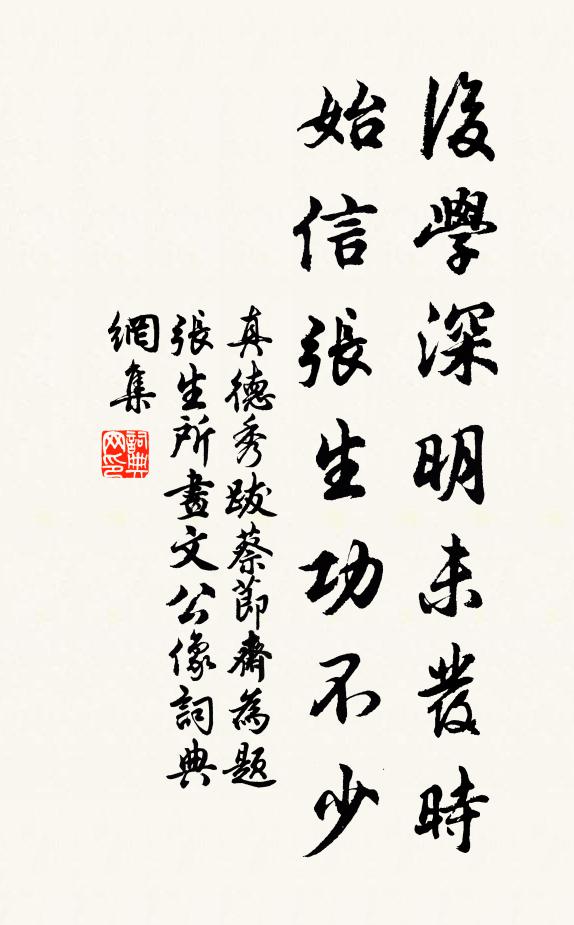 後學深明未發時
始信張生功不少
真德秀跋蔡節齋為題
張生所畫文公像詞典
網集
詞典网印